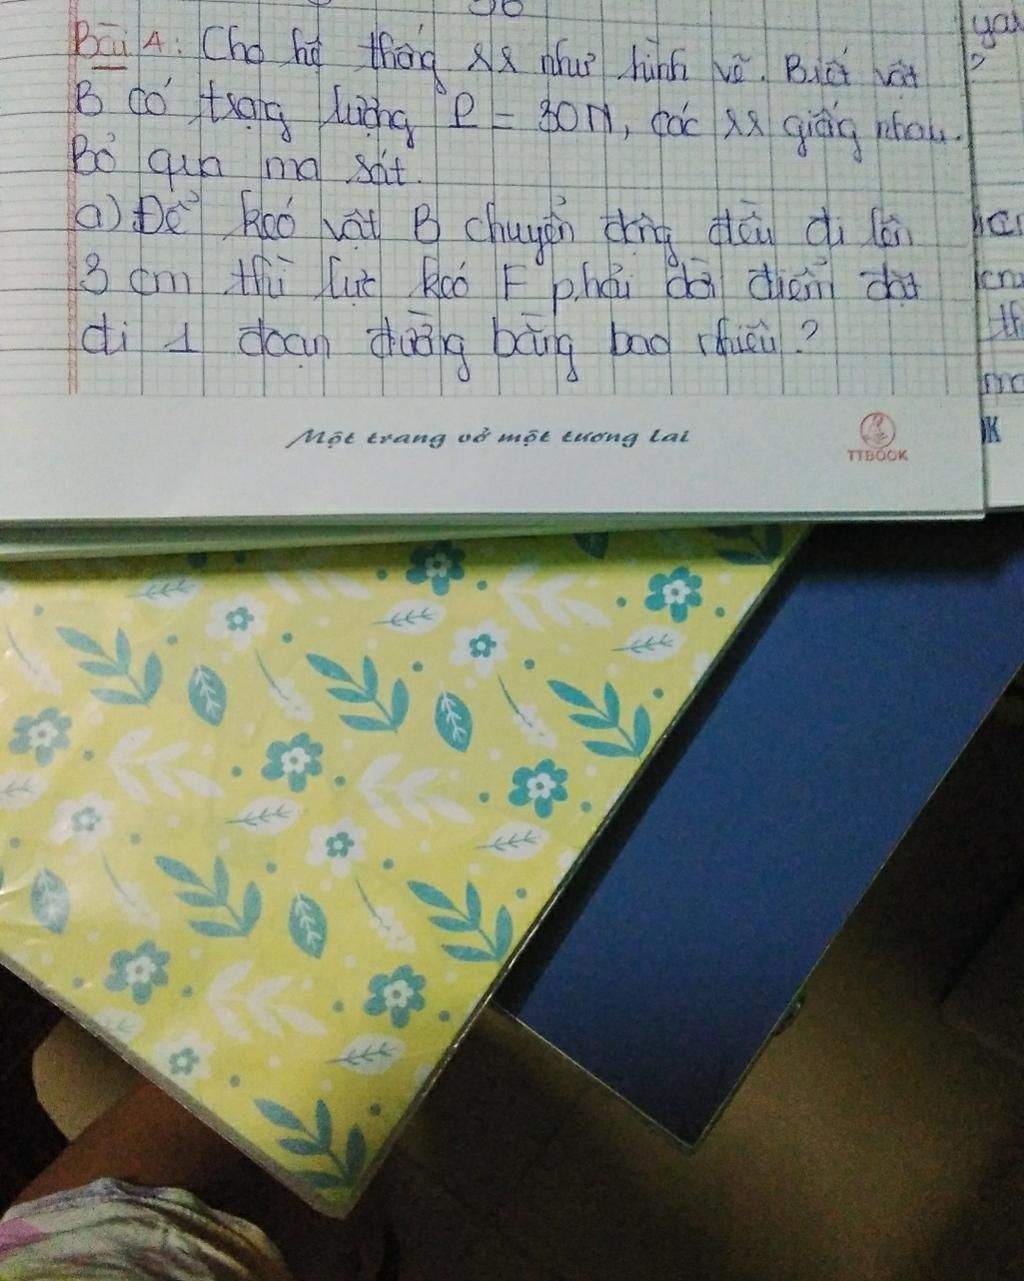 Bài 4: Cho hệ thống ss như hình vẽ. Biết vật
B có trọng lượng P = 30N, các ss giống nhau.
Bỏ qua ma sát.
a) Để kéo vật B chuyển động đều đi lên
3 cm thì lực kéo F phải dời điểm đặt
đi 1 đoạn đường bằng bao nhiêu?
Một trang vở một tương lai
TTBOOK
?
K